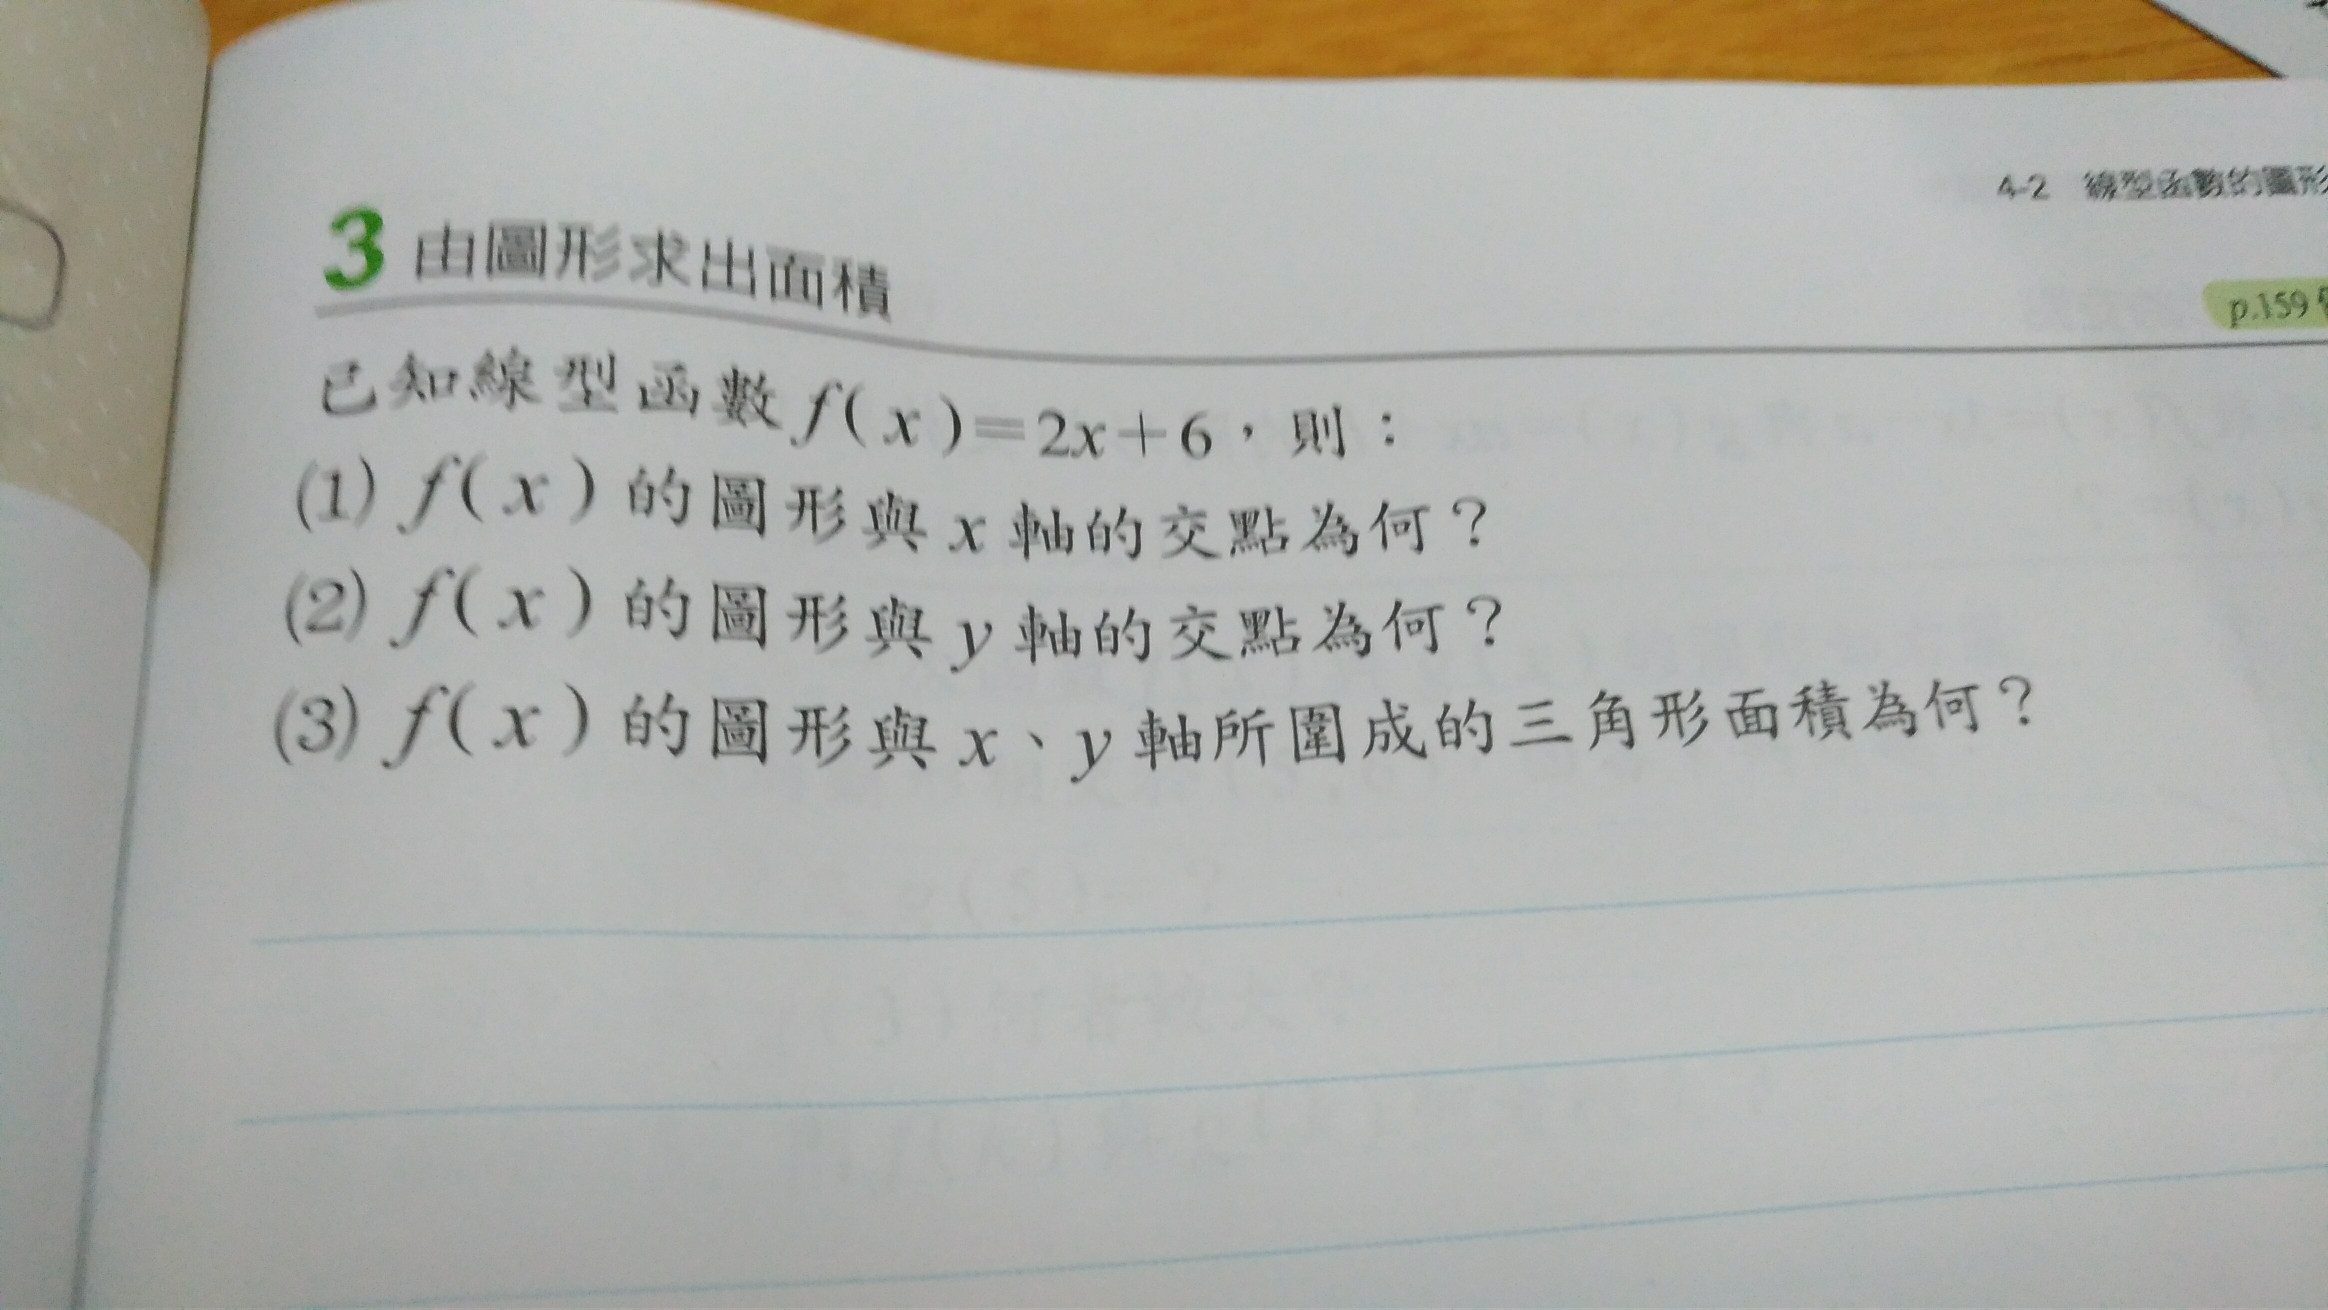 4-2 線型函數的圖形
3 由圖形求出面積
p.159
已知線型函數f(x)=2x+6，則：
(1) f(x)的圖形與x軸的交點為何？
(2) f(x)的圖形與y軸的交點為何？
(3) f(x)的圖形與x、y軸所圍成的三角形面積為何？